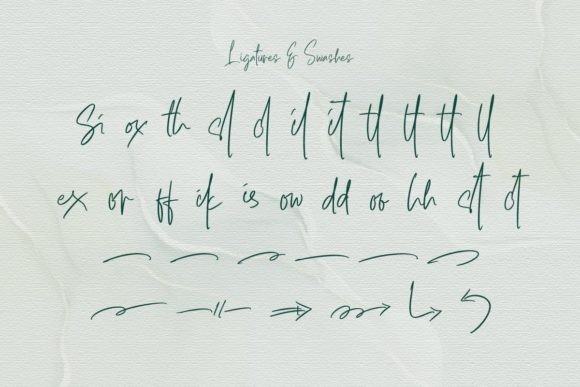 Ligatures & Swashes
Si ox th cl il it tl lt tt ll
ex or ff if is ow dd oo hh ct